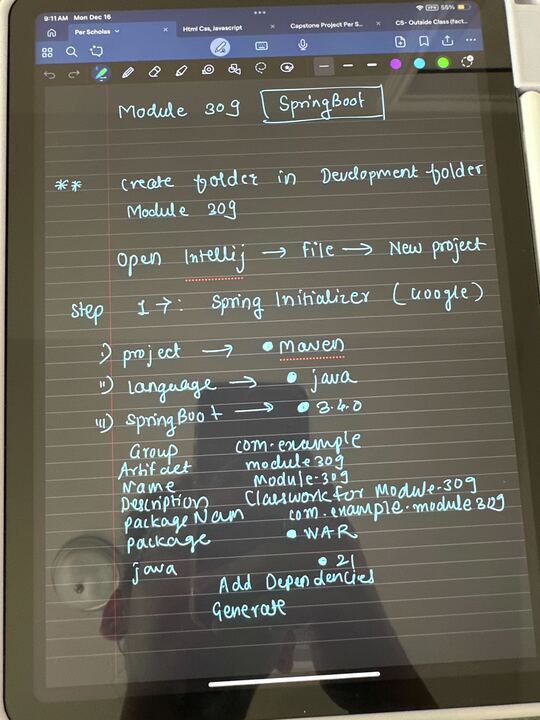 9:11 AM Mon Dec 16
55%
Per Scholas
Html Css, Javascript
Capstone Project Per S...
CS- Outside Class (fact...
Module 309 SpringBoot
** Create folder in Development folder
Module 309
Open Intellij → File → New project
Step 1 →: Spring Initializer (Google)
i) project → • Maven
ii) language → • java
iii) SpringBoot → • 3.4.0
Group com.example
Artifact module309
Name Module-309
Description Classwork for Module-309
Package Nam com.example.module309
package • WAR
java • 21
Add Dependencies
Generate